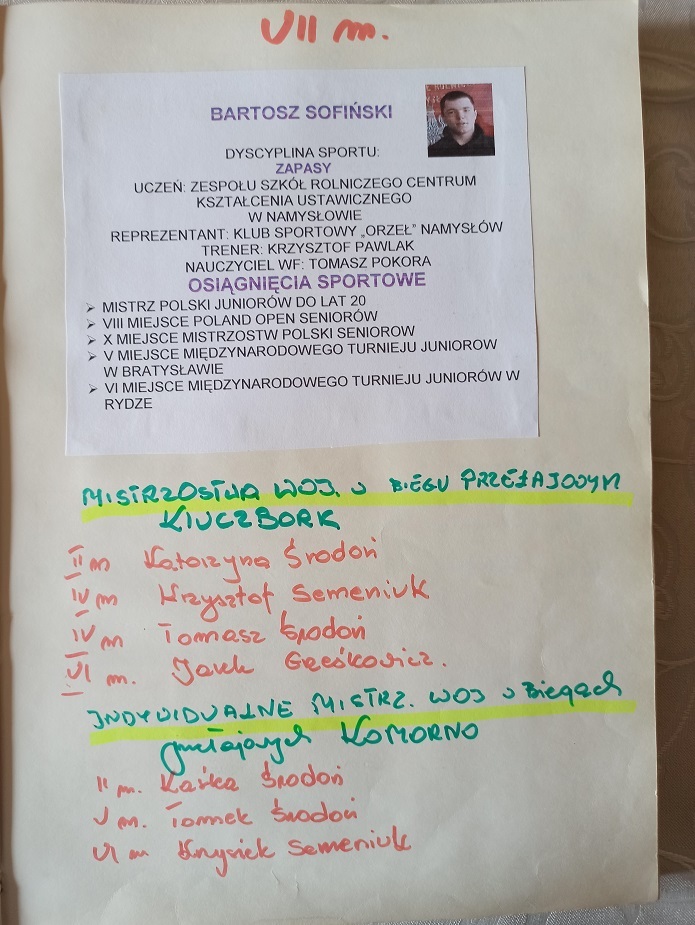 VII m.
BARTOSZ SOFIŃSKI
DYSCYPLINA SPORTU:
ZAPASY
UCZEŃ: ZESPOŁU SZKÓŁ ROLNICZEGO CENTRUM
KSZTAŁCENIA USTAWICZNEGO
W NAMYSŁOWIE
REPREZENTANT: KLUB SPORTOWY „ORZEŁ” NAMYSŁÓW
TRENER: KRZYSZTOF PAWLAK
NAUCZYCIEL WF: TOMASZ POKORA
OSIĄGNIĘCIA SPORTOWE
➢ MISTRZ POLSKI JUNIORÓW DO LAT 20
➢ VIII MIEJSCE POLAND OPEN SENIORÓW
➢ X MIEJSCE MISTRZOSTW POLSKI SENIOROW
➢ V MIEJSCE MIĘDZYNARODOWEGO TURNIEJU JUNIOROW
W BRATYSŁAWIE
➢ VI MIEJSCE MIĘDZYNARODOWEGO TURNIEJU JUNIORÓW W
RYDZE
MISTRZOSTWA WOJ. W BIEGU PRZEŁAJOWYM
KLUCZBORK
II m Katarzyna Środoń
IV m Krzysztof Semeniuk
IV m Tomasz Środoń
VI m. Jarek Greśkowicz.
INDYWIDUALNE MISTRZ. WOJ w Biegach
przełajowych KOMORNO
II m. Kaśka Środoń
V m. Tomek Środoń
VI m Krysiek Semeniuk